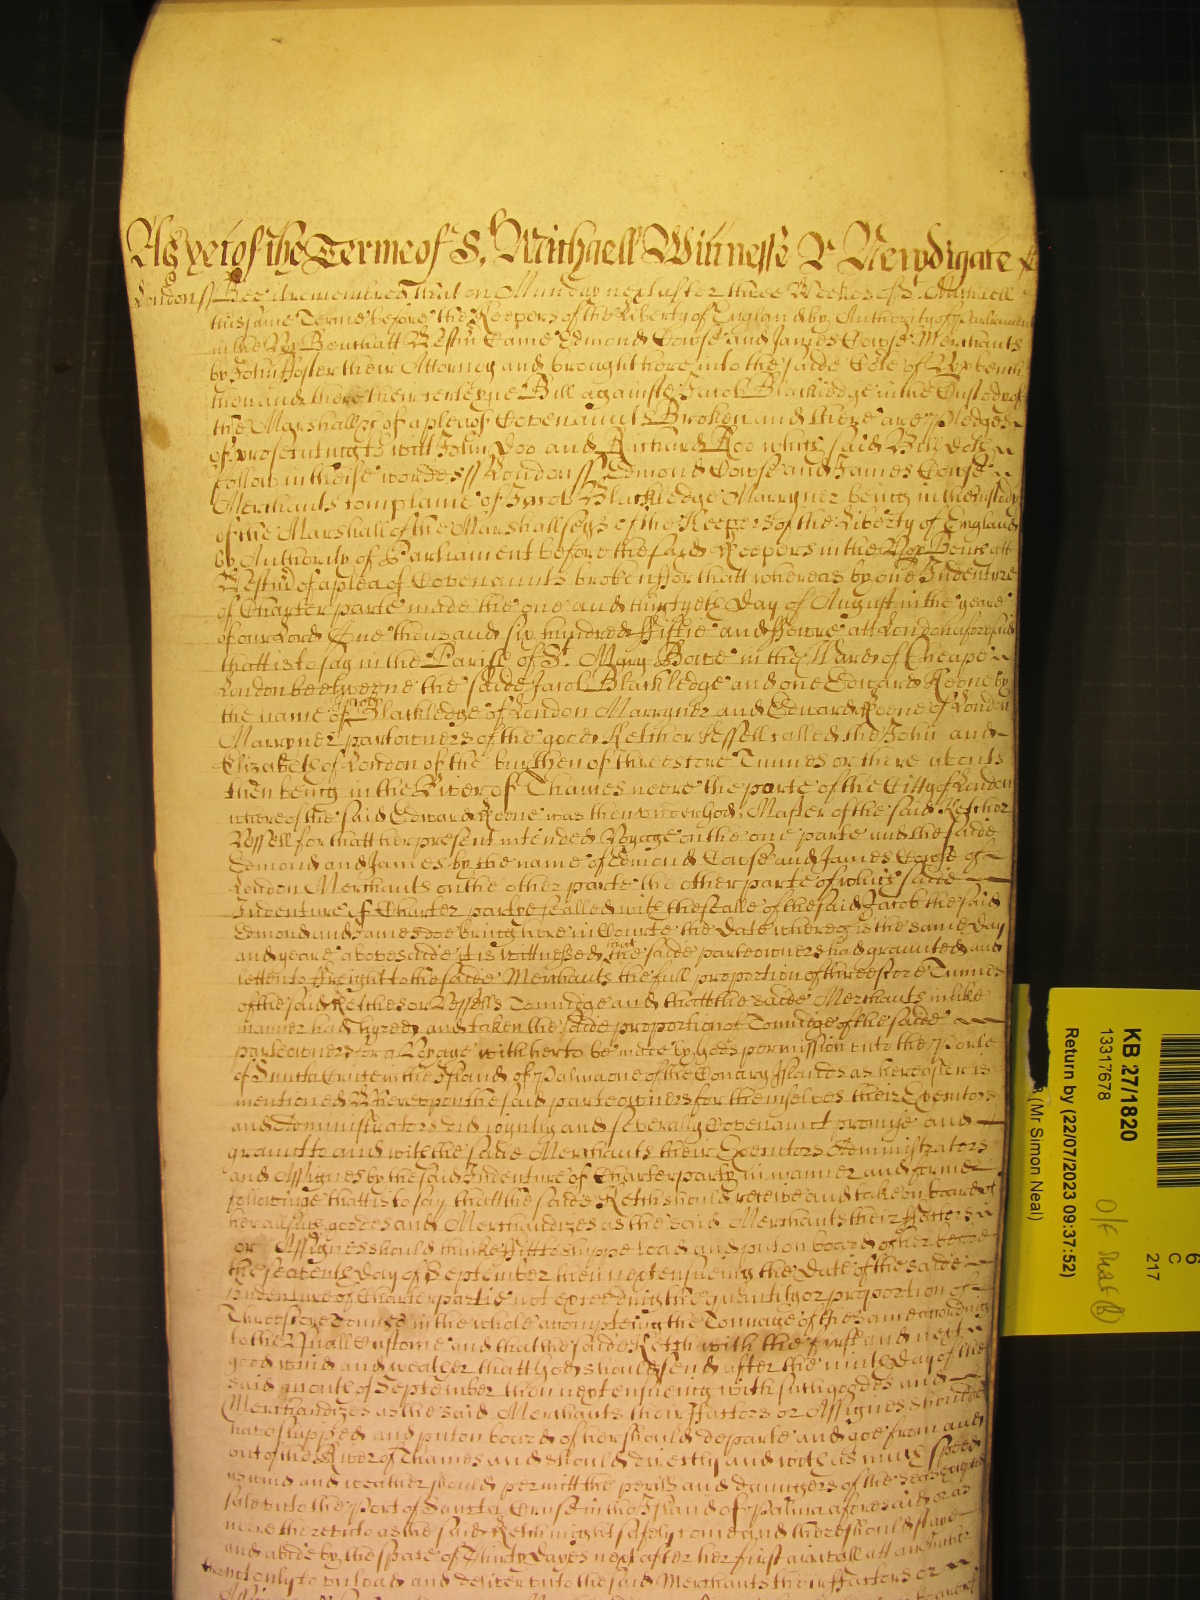 As yet of the Terme of St. Michaell Wittnesse R Newdigate
London ss Bee it remembred that on Munday next after three Weekes of St. Michaell
this same Terme before the Keepers of the Liberty of England by Authority of Parliament
in the Upp Bench att Westmr Came Edmond Cowse and James Cowse Merchants
by John Hosler their Attorney and brought here into the saide Cort of Upp bench
then and there their certeyne Bill againste Jacob Blackledge in the Custody of
the Marshall &c of a plea of Covenaunts Broken and there are Pledges
of prosecuting to witt John Doo and Richard Roo which said Bill doth
follow in theise wordes ss London ss Edmond Cowse and James Cowse
Merchants complaine of Jacob Blackledge Marryner being in the Custody
of the Marshall of the Marshallseys of the Keepers of the Liberty of England
by Authority of Parliament before the said Keepers in the Upp Bench att
Westmr of a plea of Covenaunts broken ffor thatt whereas by one Indenture
of Charter partie made the one and thirtyeth Day of August in the yeare
of our Lord One thousand six hundred ffiftie and ffowre att London aforesaid
thatt is to say in the Parish of St. Mary Bowe in the Ward of Cheape
London betweene the saide Jacob Blackledge and one Edward Keene by
the name of Jacob Blackledge of London Marryner and Edward Keene of London
Marryner partowners of the good Ketch or Vessell called the John and
Elizabeth of London of the burthen of threescore Tunnes or there abouts
then being in the River of Thames neere the porte of the Citty of London
whereof the said Edward Keene was then under God Master of the said Ketch or
Vessell for thatt her present intended Voyage on the one parte and the saide
Edmond and James by the name of Edmond Cowse and James Cowse of
London Merchants on the other parte the other parte of which saide
Indenture of Charter partye sealled with the Sealle of the said Jacob the said
Edmond and James doe bring here in Courte the Date whereof is the same Day
and yeare abovesaide itt is wittnessed that the saide parteowners had graunted and
letten to ffreight to the saide Merchants the full proportion of threescore Tunnes
of the said Ketches or Vessells Tonnidge and thatt the saide Merchants in like
manner had hyred and taken the saide proportion of Tonnidge of the saide
parteowners for a Voyage with her to be made by gods permission unto the Porte
of Santa Cruse in the Island of Palma one of the Canary Islands as hereafter is
mentioned Whereupon the said parteowners for themselves their Executors
and Administrators did joyntly and severally Covenaunt promise and
graunt to and with the saide Merchants their Executors Administrators
and Assignes by the said Indenture of Charter party in manner and forme
followinge thatt is to say thatt the saide Ketch should receive and take on board of
her all such goodes and Merchandizes as the said Merchants their ffactors
or Assignes should thinke ffitt to shippe load and put on board of her before
the seaventh Day of September then next ensueing the Date of the saide
Indenture of Charter partie not exceeding the quantity or proportion of
Threescore Tonnes in the whole accompteing the Tonnage of the same according
to the Usuall Custome and that the saide Ketch with the first and next
good wind and weather thatt God should send after the ninth Day of the
said month of September then next ensueing with such goodes and
Merchandizes as the said Merchants their ffactors or Assignes should
have shipped and put on board of her should departe and goe from and
out of the River of Thames and should directly and with as much speed
as wind and weather would permitt the perills and daungers of the seas excepted
saile unto the Port of Santa Cruse in the Island of Palma aforesaid or as
neere thereunto as the said Ketch might safely come and there should stay
and abide by the space of Thirty Dayes next after her first arrivall att anchour
there not only to unload and deliver unto the said Merchants their ffactors or
KB 27/1820
13317678
Return by (22/07/2023 09:37:52)
(Mr Simon Neal)
6
C
217